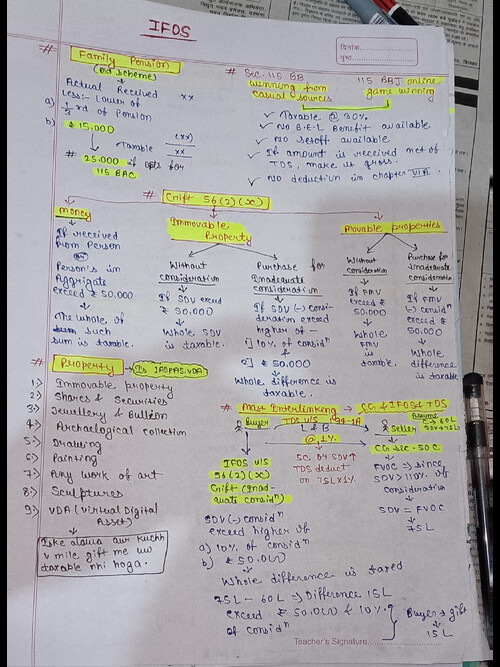 IFOS
दिनांक
पृष्ठ
# Family Pension
(old scheme)
Actual Received xx
Less:- Lower of
a) 1/3 rd of Pension
b) ₹ 15,000 (xx)
Taxable xx
# 25,000 if opts for
115 BAC
# Sec. 115 BB
winning from
casual sources
115 BBJ online
game winning
✓ Taxable @ 30%
✓ NO B.E.L Benefit available
✓ No setoff available
✓ If amount is received net of
TDS, make it gross.
✓ No deduction in chapter VIA
# Gift 56(2)(x)
money
↓
If received
from Person
or
Person's in
Aggregate
exceed ₹ 50,000
↓
The whole of
such
sum is taxable.
Immovable
Property
Without
consideration
↓
If SDV exceed
₹ 50,000
↓
Whole SDV
is taxable.
Purchase for
Inadequate
consideration
↓
If SDV (-) consi-
deration exceed
higher of —
1] 10% of considⁿ
&
2] 50,000
↓
Whole difference is
taxable.
Movable properties
Without
consideration
↓
If FMV
exceed ₹
50,000
↓
Whole
FMV
is
taxable.
Purchase for
inadequate
consideration
↓
If FMV
(-) considⁿ
exceed ₹
50,000
↓
Whole
difference
is taxable
# Property → Is JADPAS.VDA
1.) Immovable property
2.) Shares & Securities
3.) Jewellery & Bullion
4.) Archaelogical collection
5.) Drawing
6.) Painting
7.) Any work of art
8.) Sculptures
9.) VDA (virtual Digital
Asset)
Iske alawa aur kuchh
v mile gift me uw
taxable nhi hoga.
# Most Interlinking → CG & IFOS & TDS
Assume
C → 60L
SDV → 75L
Buyer
TDS u/s 194-IA
L & B
@ 1%
Seller
↓
CG sec - 50C
↓
FVOC → since
SDV > 110% of
consideration
↓
SDV = FVOC
↓
75L
SC or SDV↑
TDS deduct
on 75L x 1%
IFOS U/S
56(2)(x)
Gift (Inad-
quate considⁿ)
↓
SDV (-) considⁿ
exceed higher of
a) 10% of considⁿ
b) ₹ 50,000
↓
Whole difference is taxed
75L - 60L → Difference 15L
exceed ₹ 50,000 & 10%
of considⁿ
Buyer → gift
↓
15L
Teacher's Signature